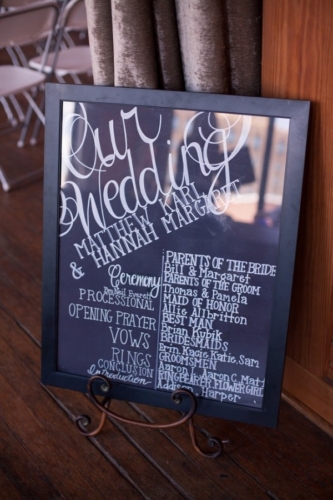 Our
Wedding
MATTHEW KARL
& HANNAH MARGARET
Ceremony
PROCESSIONAL
OPENING PRAYER
VOWS
RINGS
CONCLUSION
Introduction
PARENTS OF THE BRIDE
Bill & Margaret
PARENTS OF THE GROOM
Thomas & Pamela
MAID OF HONOR
Allie Allbritton
BEST MAN
Brian
BRIDESMAIDS
Erin, Kacie, Katie, Sam
GROOMSMEN
Aaron J., Aaron C., Matt
RINGBEARER FLOWER GIRL
Harper